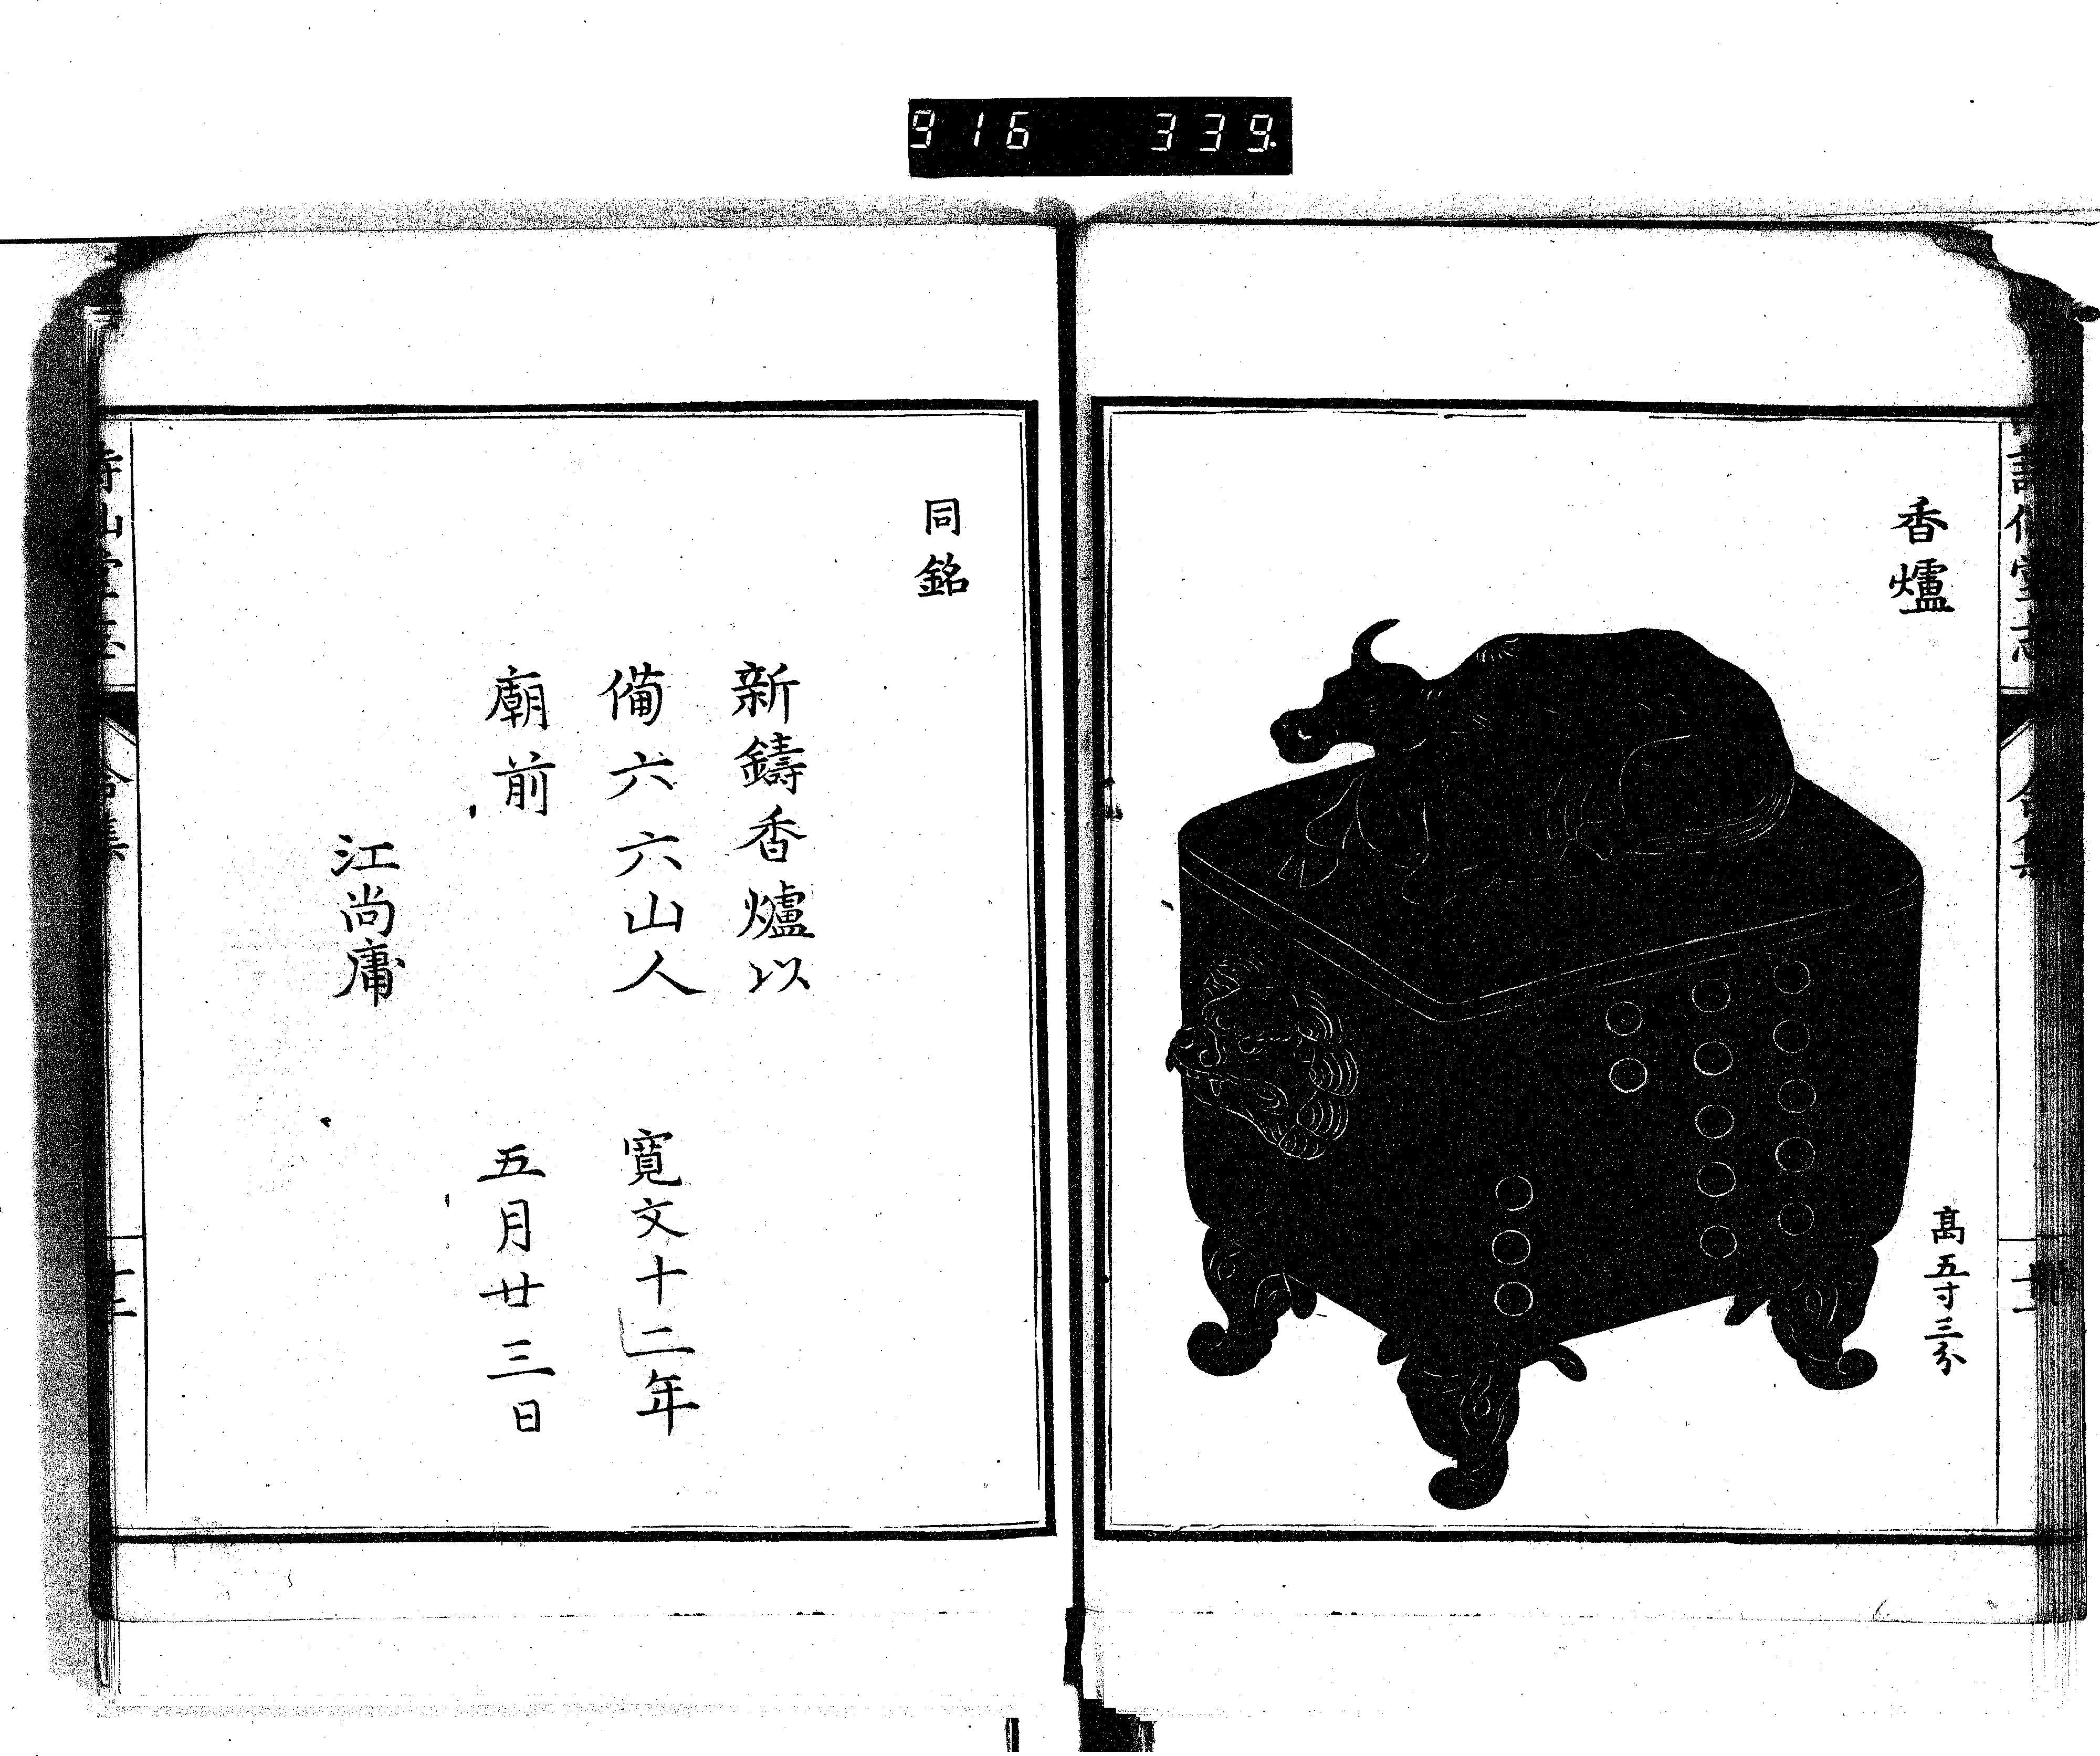 916 339.
香爐
高五寸三分
同銘
新鑄香爐以
備六六山人
廟前
寛文十二年
五月廿三日
江尚庸